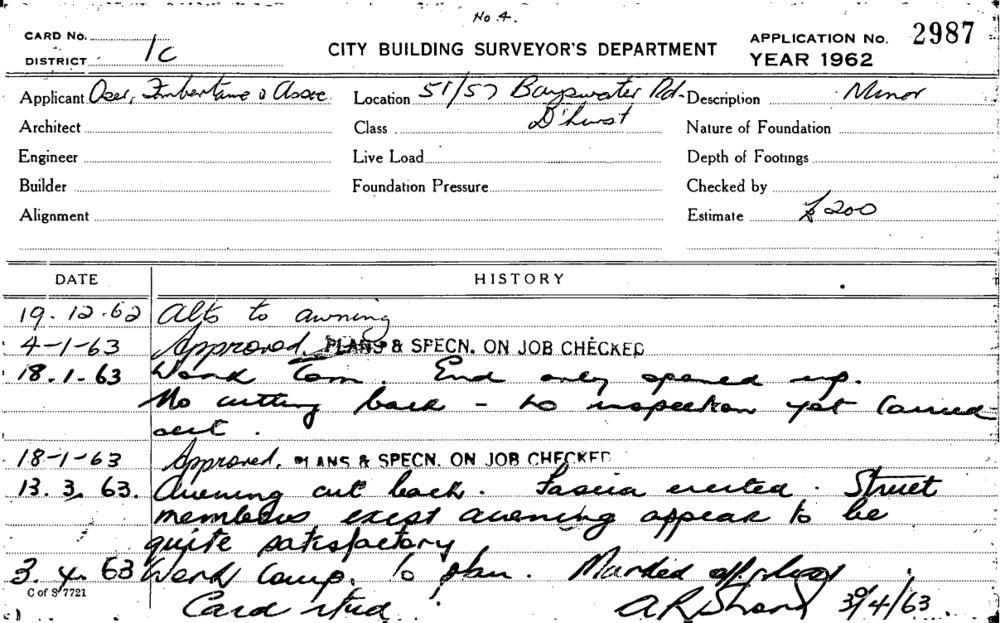 No 4.
CARD No.
DISTRICT 1C
CITY BUILDING SURVEYOR'S DEPARTMENT
APPLICATION No. 2987
YEAR 1962
Applicant Oser, & Assoc Location 51/57 Bayswater Rd. Description Minor
Architect Class D'hurst Nature of Foundation
Engineer Live Load Depth of Footings
Builder Foundation Pressure Checked by
Alignment Estimate £200
DATE HISTORY
19.12.62 Alts to awning
4-1-63 Approved. PLANS & SPECN. ON JOB CHECKED
18.1.63 Work Com. End only opened up.
No cutting back - no inspection yet Carried
out.
18-1-63 Approved. PLANS & SPECN. ON JOB CHECKED
13.3.63. Awning cut back. Fascia erected. Struct
members exist awning appear to be
quite satisfactory
3.4.63 Work Comp. to plan. Marked off
C of S 7721
Card 3/4/63.